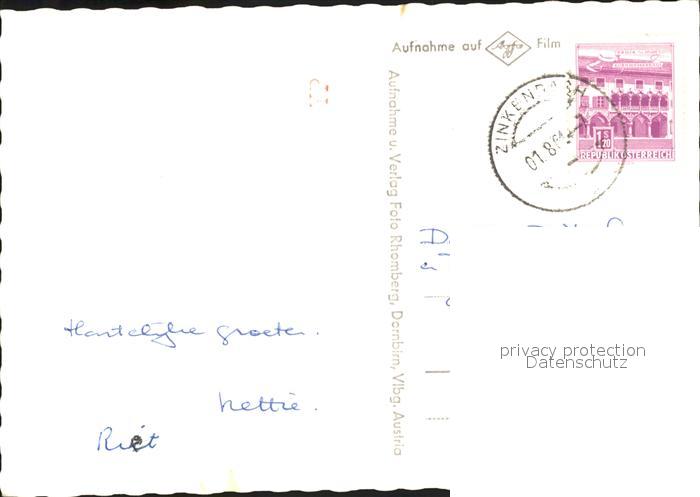 Aufnahme auf Agfa Film
ZINKENBACH
01.8.
1 S 20
REPUBLIK ÖSTERREICH
Aufnahme u. Verlag Foto Rhomberg, Dornbirn, Vlbg. Austria
Hartelijke groeten.
Nettie.
Riet
privacy protection
Datenschutz